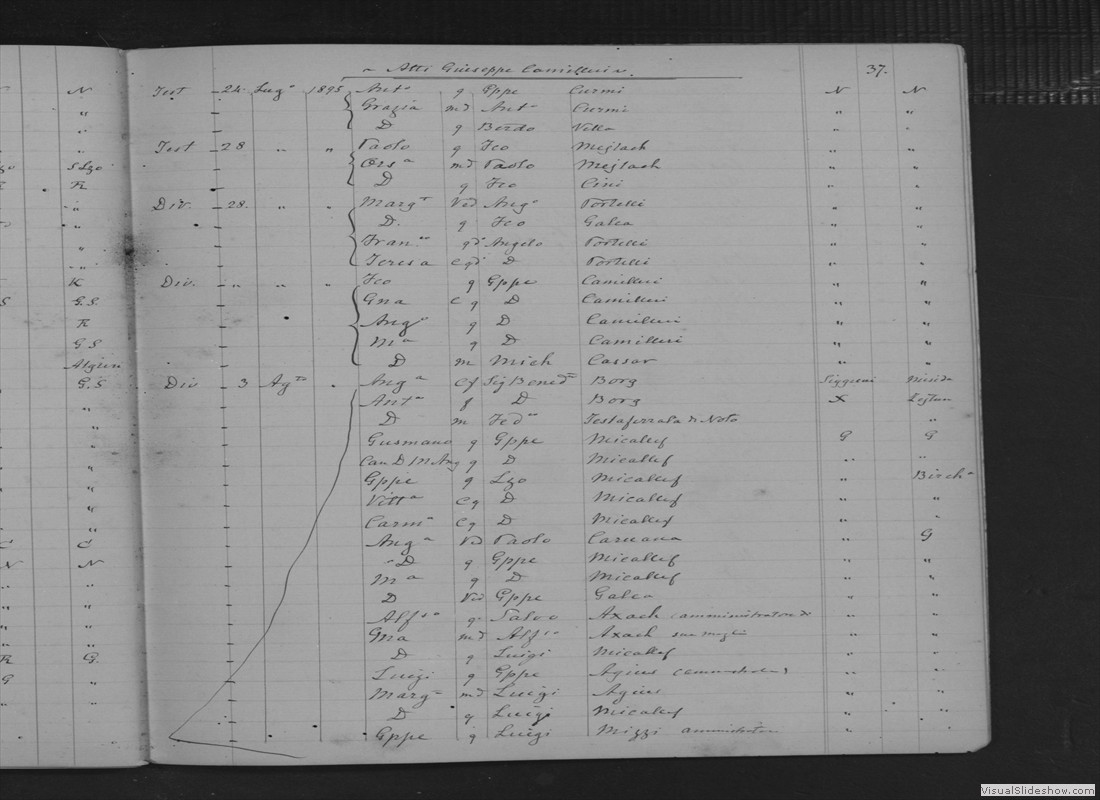 Atti Giuseppe Camilleri 37.
N Test 24 Lug° 1895 Ant° q Gppe Curmi N N
" Grazia md Ant° Curmi " "
" D q Berdo Vella " "
Test 28 " " Paolo q Fco Mejlach " "
S Lzo Ors a md Paolo Mejlach " "
K D q Fco Cini " "
" Div. 28. " " Marg a Ved Ang° Portelli " "
" D. q Fco Galea " "
" Fran co qd Angelo Portelli " "
" Teresa c qd D Portelli " "
K Div. " " " Fco q Gppe Camilleri " "
S G.S Gna c q D Camilleri " "
K Ang° q D Camilleri " "
G S M a q D Camilleri " "
D m Mich Cassar " "
G.S Div 3 Ag to " Ang a Cf Sig Bened Borg Siggieui
" Ant a f D Borg X Zejtun
" D m Fed co Testaferrata di Noto "
" Gusmano q Gppe Micallef G G
" Can D M Ang q D Micallef " "
" Gppe q Lzo Micallef " Birch a
" Vitt a C q D Micallef " "
" Carm a C q D Micallef " "
C C Ang a Vd Paolo Caruana " G
N N D q Gppe Micallef " "
" M a q D Micallef " "
" D Ved Gppe Galea " "
" Alf so q Salvo Axach
" Gna md Alf so Axach sua moglie " "
K G. D q Luigi Micallef " "
G " Luigi q Gppe Agius " "
" Marg a md Luigi Agius " "
D q Luigi Micallef " "
Gppe q Luigi Mizzi "
VisualSlideshow.com